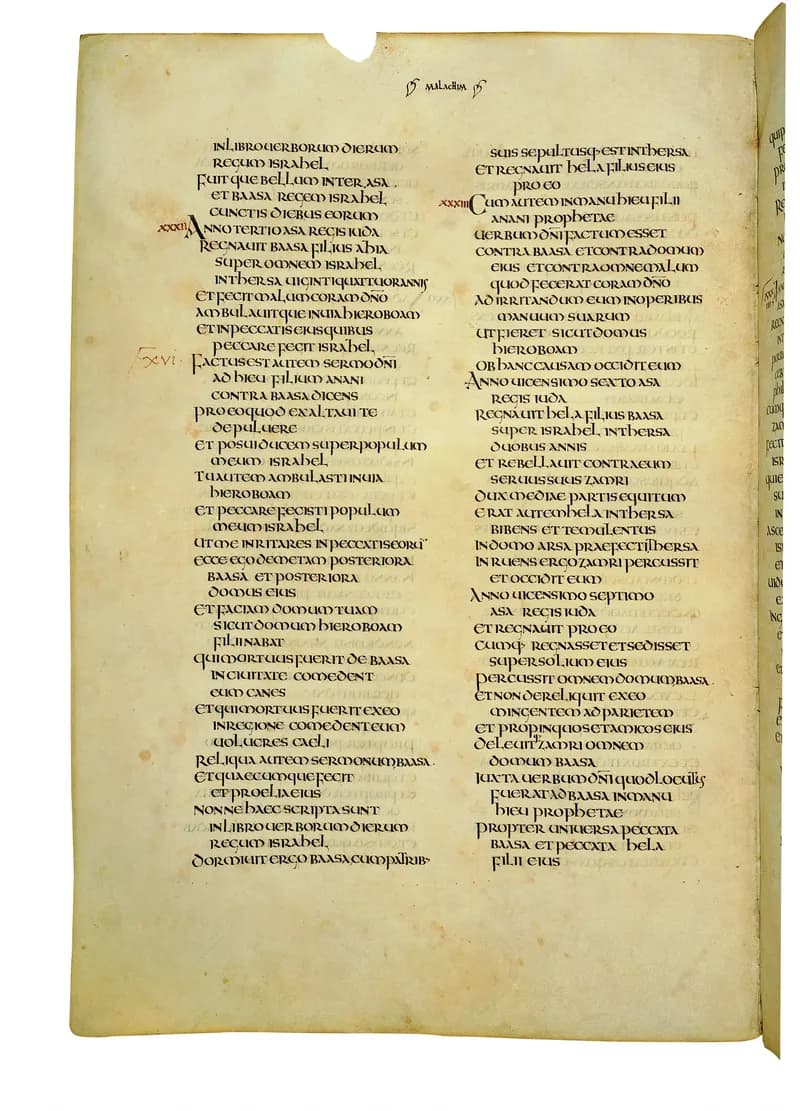 MALACHIM
IN LIBRO UERBORUM DIERUM
REGUM ISRAHEL
FUITQUE BELLUM INTER ASA
ET BAASA REGEM ISRAHEL
CUNCTIS DIEBUS EORUM
XXXII ANNO TERTIO ASA REGIS IUDA
REGNAUIT BAASA FILIUS AHIA
SUPER OMNEM ISRAHEL
IN THERSA UIGINTI QUATTUOR ANNIS
ET FECIT MALUM CORAM DÑO
AMBULAUITQUE IN UIA HIEROBOAM
ET IN PECCATIS EIUS QUIBUS
PECCARE FECIT ISRAHEL
XVI FACTUS EST AUTEM SERMO DÑI
AD HIEU FILIUM ANANI
CONTRA BAASA DICENS
PRO EO QUOD EXALTAUI TE
DE PULUERE
ET POSUI DUCEM SUPER POPULUM
MEUM ISRAHEL
TU AUTEM AMBULASTI IN UIA
HIEROBOAM
ET PECCARE FECISTI POPULUM
MEUM ISRAHEL
UT ME INRITARES IN PECCATIS EORŪ
ECCE EGO DEMETAM POSTERIORA
BAASA ET POSTERIORA
DOMUS EIUS
ET FACIAM DOMUM TUAM
SICUT DOMUM HIEROBOAM
FILII NABAT
QUI MORTUUS FUERIT DE BAASA
IN CIUITATE COMEDENT
EUM CANES
ET QUI MORTUUS FUERIT EX EO
IN REGIONE COMEDENT EUM
UOLUCRES CAELI
RELIQUA AUTEM SERMONUM BAASA
ET QUAECUMQUE FECIT
ET PROELIA EIUS
NONNE HAEC SCRIPTA SUNT
IN LIBRO UERBORUM DIERUM
REGUM ISRAHEL
DORMIUIT ERGO BAASA CUM PATRIB·
SUIS SEPULTUSQ· EST IN THERSA
ET REGNAUIT HELA FILIUS EIUS
PRO EO
XXXIII CUM AUTEM IN MANU HIEU FILII
ANANI PROPHETAE
UERBUM DÑI FACTUM ESSET
CONTRA BAASA ET CONTRA DOMUM
EIUS ET CONTRA OMNE MALUM
QUOD FECERAT CORAM DÑO
AD IRRITANDUM EUM IN OPERIBUS
MANUUM SUARUM
UT FIERET SICUT DOMUS
HIEROBOAM
OB HANC CAUSAM OCCIDIT EUM
ANNO UICENSIMO SEXTO ASA
REGIS IUDA
REGNAUIT HELA FILIUS BAASA
SUPER ISRAHEL IN THERSA
DUOBUS ANNIS
ET REBELLAUIT CONTRA EUM
SERUUS SUUS ZAMRI
DUX MEDIAE PARTIS EQUITUM
ERAT AUTEM HELA IN THERSA
BIBENS ET TEMULENTUS
IN DOMO ARSA PRAEFECTI THERSA
INRUENS ERGO ZAMRI PERCUSSIT
ET OCCIDIT EUM
ANNO UICENSIMO SEPTIMO
ASA REGIS IUDA
ET REGNAUIT PRO EO
CUMQ· REGNASSET ET SEDISSET
SUPER SOLIUM EIUS
PERCUSSIT OMNEM DOMUM BAASA
ET NON DERELIQUIT EX EO
MINGENTEM AD PARIETEM
ET PROPINQUOS ET AMICOS EIUS
DELEUITQ· ZAMRI OMNEM
DOMUM BAASA
IUXTA UERBUM DÑI QUOD LOCUTUS
FUERAT AD BAASA IN MANU
HIEU PROPHETAE
PROPTER UNIUERSA PECCATA
BAASA ET PECCATA HELA
FILII EIUS